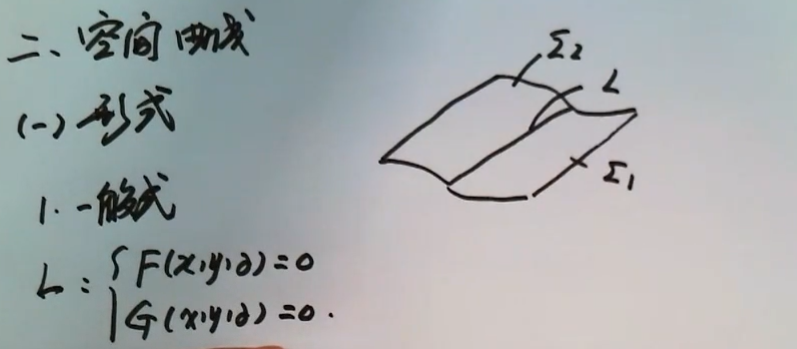 二、空间曲线
(一) 形式
1. 一般式
L: { F(x,y,z)=0
G(x,y,z)=0.
Σ2
L
Σ1